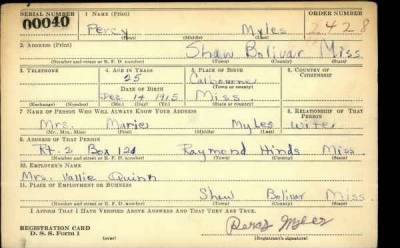 SERIAL NUMBER 1. NAME (Print) ORDER NUMBER
00040 Percy Myles 2428
(First) (Middle) (Last)
2. ADDRESS (Print)
Shaw Bolivar Miss
(Number and street or R. F. D. number) (Town) (County) (State)
3. TELEPHONE 4. AGE IN YEARS 5. PLACE OF BIRTH 6. COUNTRY OF CITIZENSHIP
25
(Town or county)
DATE OF BIRTH
Dec. 14 1915 Miss
(Exchange) (Number) (Mo.) (Day) (Yr.) (State or country)
7. NAME OF PERSON WHO WILL ALWAYS KNOW YOUR ADDRESS 8. RELATIONSHIP OF THAT PERSON
Mrs. Marie Myles Wife
(Mr., Mrs., Miss) (First) (Middle) (Last)
9. ADDRESS OF THAT PERSON
Rt. 2 Box 120 Raymond Hinds Miss.
(Number and street or R. F. D. number) (Town) (County) (State)
10. EMPLOYER'S NAME
Mrs. Vallie Quinn
11. PLACE OF EMPLOYMENT OR BUSINESS
Shaw Bolivar Miss.
(Number and street or R. F. D. number) (Town) (County) (State)
I AFFIRM THAT I HAVE VERIFIED ABOVE ANSWERS AND THAT THEY ARE TRUE.
REGISTRATION CARD Percy Myles
D. S. S. Form 1 (Registrant's signature)